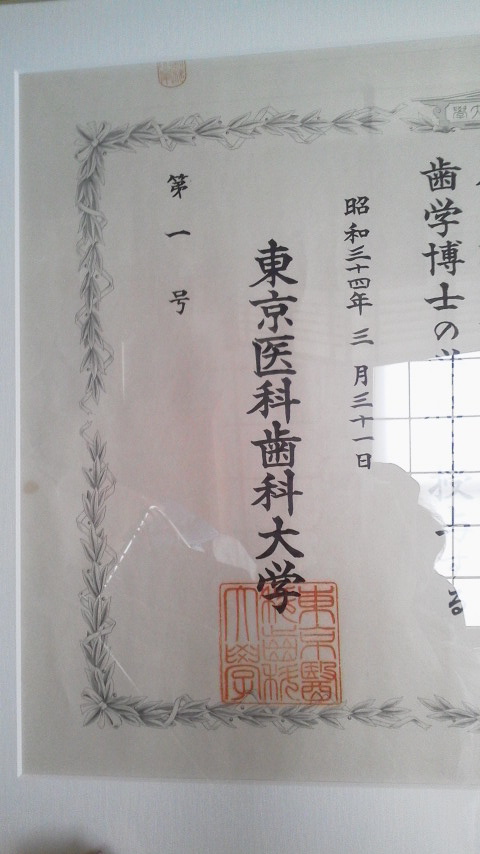 歯学博士の学
昭和三十四年三月三十一日
東京医科歯科大学
第一号
東京醫科歯科大學